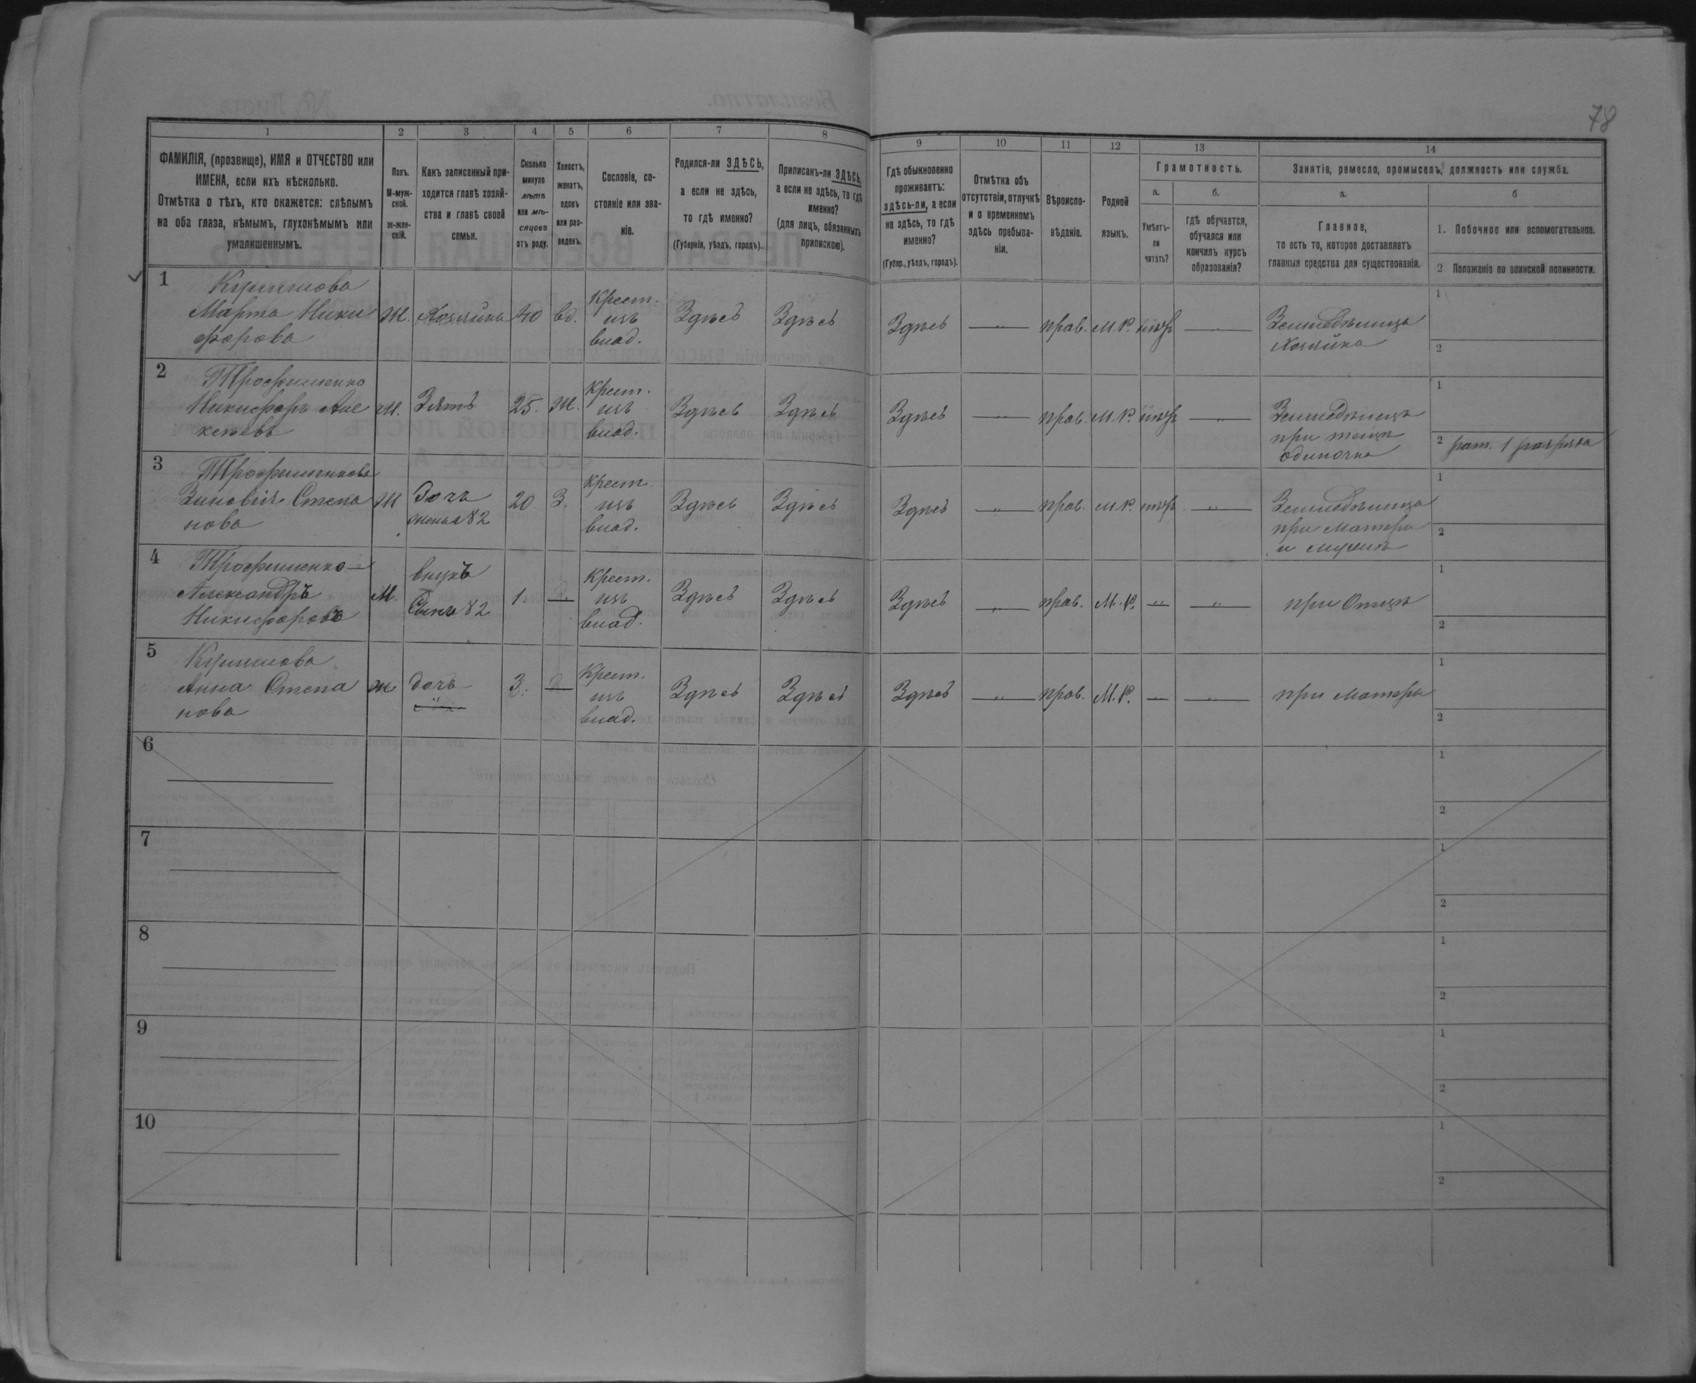 78
1 2 3 4 5 6 7 8 9 10 11 12 13 14
ФАМИЛІЯ, (прозвище), ИМЯ и ОТЧЕСТВО или
ИМЕНА, если ихъ нѣсколько.
Отмѣтка о тѣхъ, кто окажется: слѣпымъ
на оба глаза, нѣмымъ, глухонѣмымъ или
умалишеннымъ.
Полъ.
М-муж-
ской.
ж-жен-
скій.
Какъ записанный при-
ходится главѣ хозяй-
ства и главѣ своей
семьи.
Сколько
минуло
лѣтъ
или мѣ-
сяцевъ
отъ роду.
Холостъ,
женатъ,
вдовъ
или раз-
веденъ.
Сословіе, со-
стояніе или зва-
ніе.
Родился-ли ЗДѢСЬ,
а если не здѣсь,
то гдѣ именно?
(Губернія, уѣздъ, городъ).
Приписанъ-ли ЗДѢСЬ,
а если не здѣсь, то гдѣ
именно?
(для лицъ, обязанныхъ
припискою).
Гдѣ обыкновенно
проживаетъ:
здѣсь-ли, а если
не здѣсь, то гдѣ
именно?
(Губер., уѣздъ, городъ).
Отмѣтка объ
отсутствіи, отлучкѣ
и о временномъ
здѣсь пребыва-
ніи.
Вѣроиспо-
вѣданіе.
Родной
языкъ.
Грамотность.
а.
Умѣетъ-
ли
читать?
б.
гдѣ обучается,
обучался или
кончилъ курсъ
образованія?
Занятіе, ремесло, промыселъ, должность или служба.
а.
Главное,
то есть то, которое доставляетъ
главныя средства для существованія.
б
1. Побочное или вспомогательное.
2 Положеніе по воинской повинности.
1
Марта Ники
форова
Хозяйка 40 вд.
Крест.
изъ
влад.
Здѣсь Здѣсь Здѣсь прав. М.Р.
Земледѣлица
Хозяйка
1
2
2
Трофименко
Никифоръ Але
ксѣевъ
м. Зять 25. ж.
Крест.
изъ
влад.
Здѣсь Здѣсь Здѣсь прав. М.Р.
Земледѣлецъ
при тещи
одиночка
1
2 рат. 1 разряда
3
Трофименкова
Зиновія Степа
нова
ж
Дочь
жена 82
20 З.
Крест.
изъ
влад.
Здѣсь Здѣсь Здѣсь прав. М.Р.
Земледѣлица
при матери
и мужѣ
1
2
4
Трофименко
Александръ
Никифоровъ
М.
внукъ
Сынъ 82
1.
Крест.
изъ
влад.
Здѣсь Здѣсь Здѣсь прав. М.Р. при Отцѣ
1
2
5
Анна Степа
нова
ж дочь 3.
Крест.
изъ
влад.
Здѣсь Здѣсь Здѣсь прав. М.Р. при матери
1
2
6
1
2
7
1
2
8
1
2
9
1
2
10
1
2